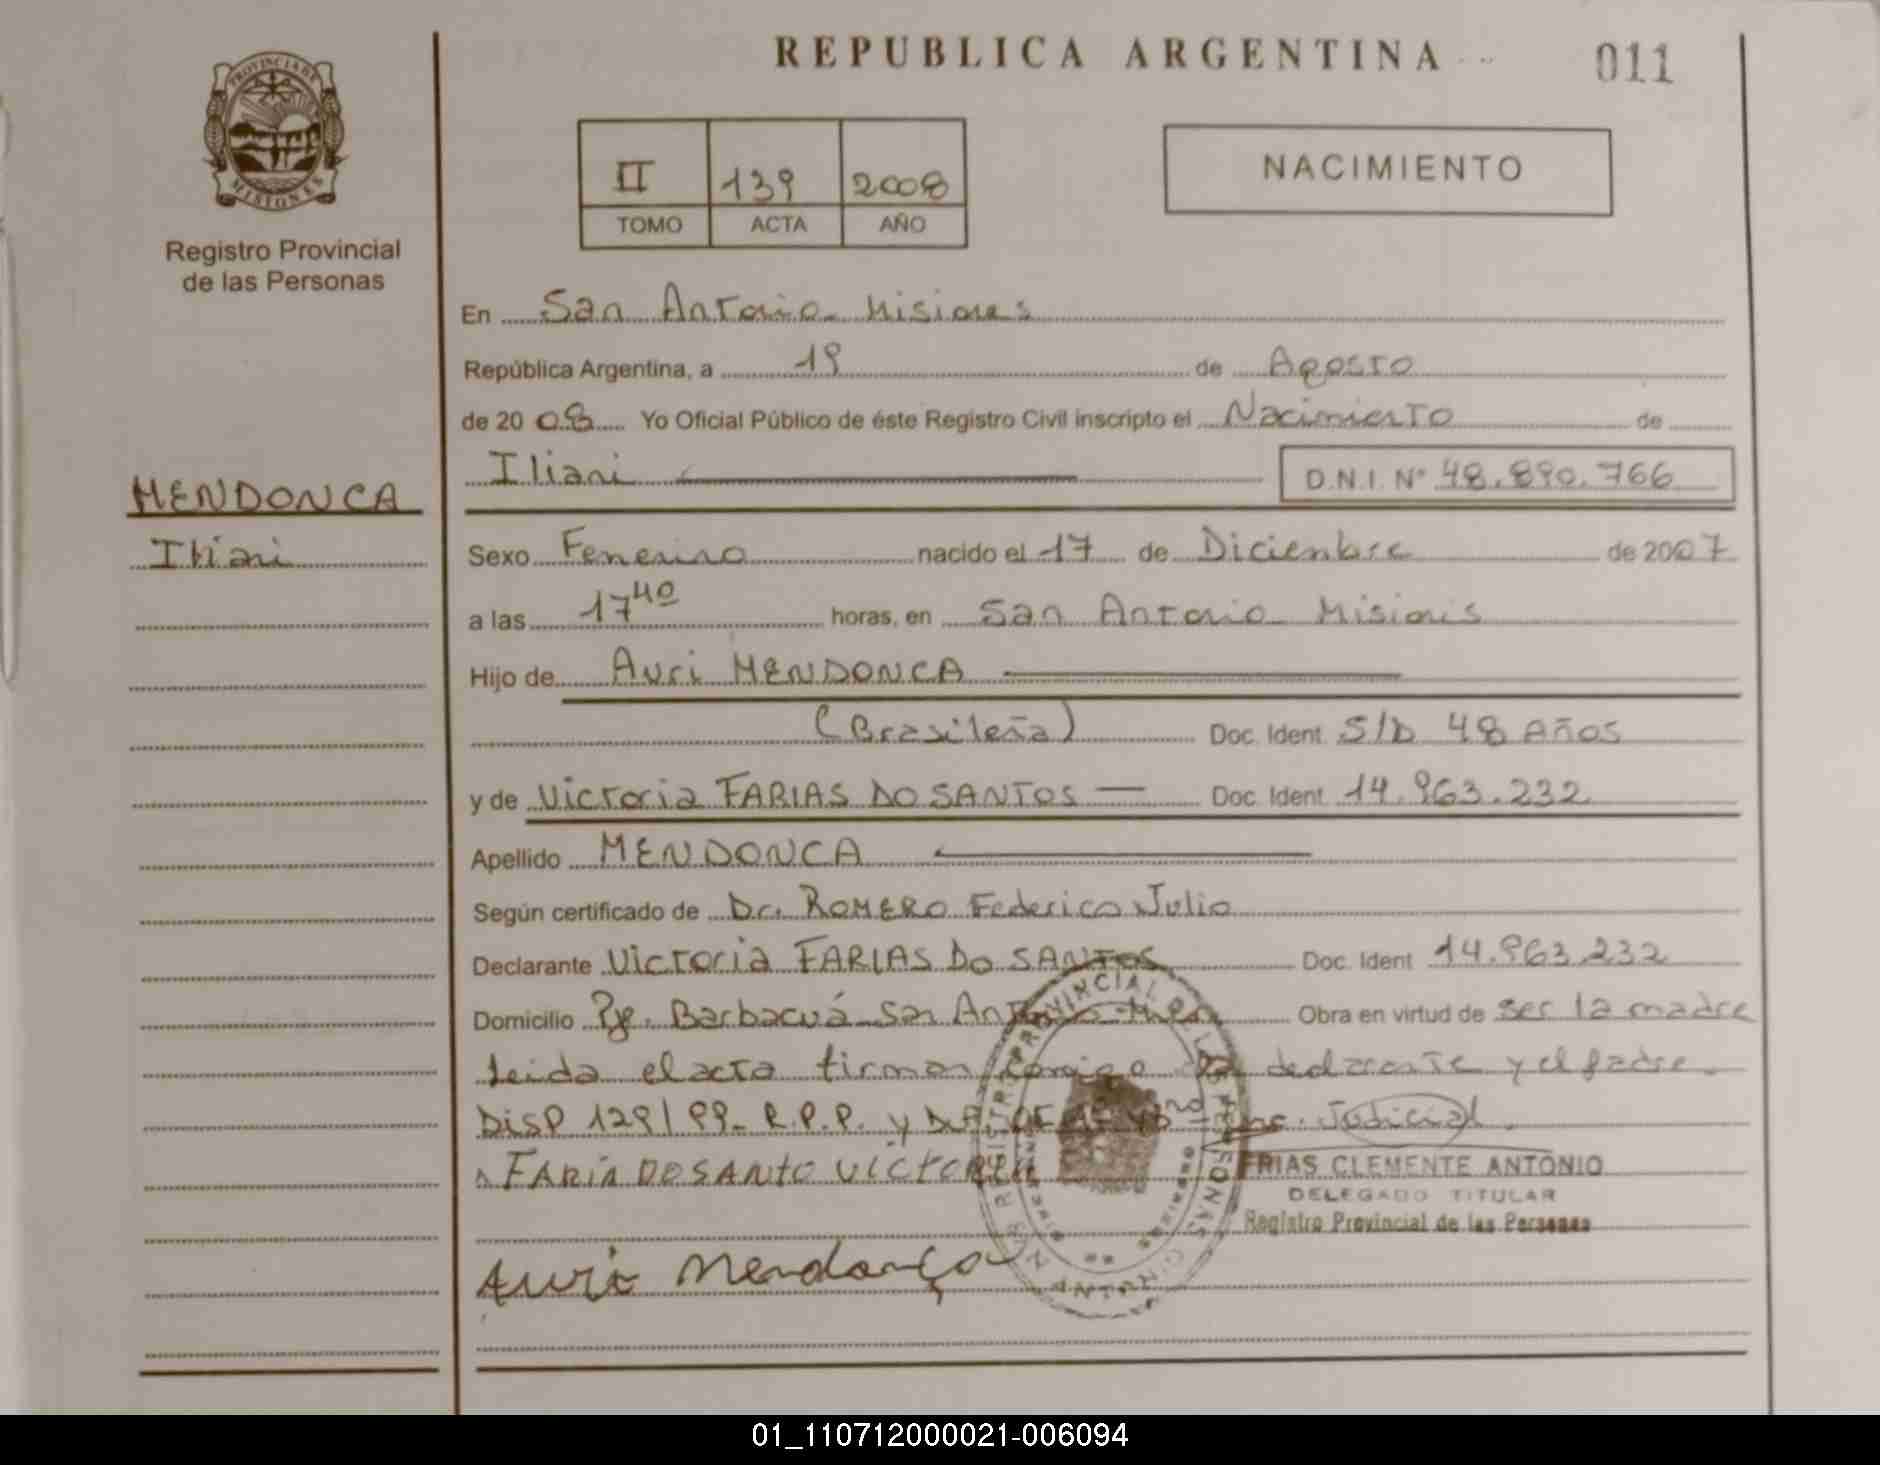 REPUBLICA ARGENTINA
011
PROVINCIA DE
MISIONES
Registro Provincial
de las Personas
II 139 2008
TOMO ACTA AÑO
NACIMIENTO
En San Antonio Misiones
República Argentina, a 19 de Agosto
de 2008 Yo Oficial Público de éste Registro Civil inscripto el Nacimiento de
Iliani D.N.I. Nº 48.890.766
MENDONCA
Iliani
Sexo Femenino nacido el 17 de Diciembre de 2007
a las 17 40 horas, en San Antonio Misiones
Hijo de Auri MENDONCA
(Brasileña) Doc. Ident. S/D 48 Años
y de Victoria FARIAS DO SANTOS Doc. Ident. 14.963.232
Apellido MENDONCA
Según certificado de Dr. ROMERO Federico Julio
Declarante Victoria FARIAS DO SANTOS Doc. Ident. 14.963.232
Domicilio Pje. Barbacuá San Antonio Mnes Obra en virtud de ser la madre
Leida el acta firman conmigo la declarante y el padre.
DISP 129/99- R.P.P. y Judicial.
FARIA DO SANTO VICTORIA
FRIAS CLEMENTE ANTONIO
DELEGADO TITULAR
Registro Provincial de las Personas
Auri Mendonça
01_110712000021-006094